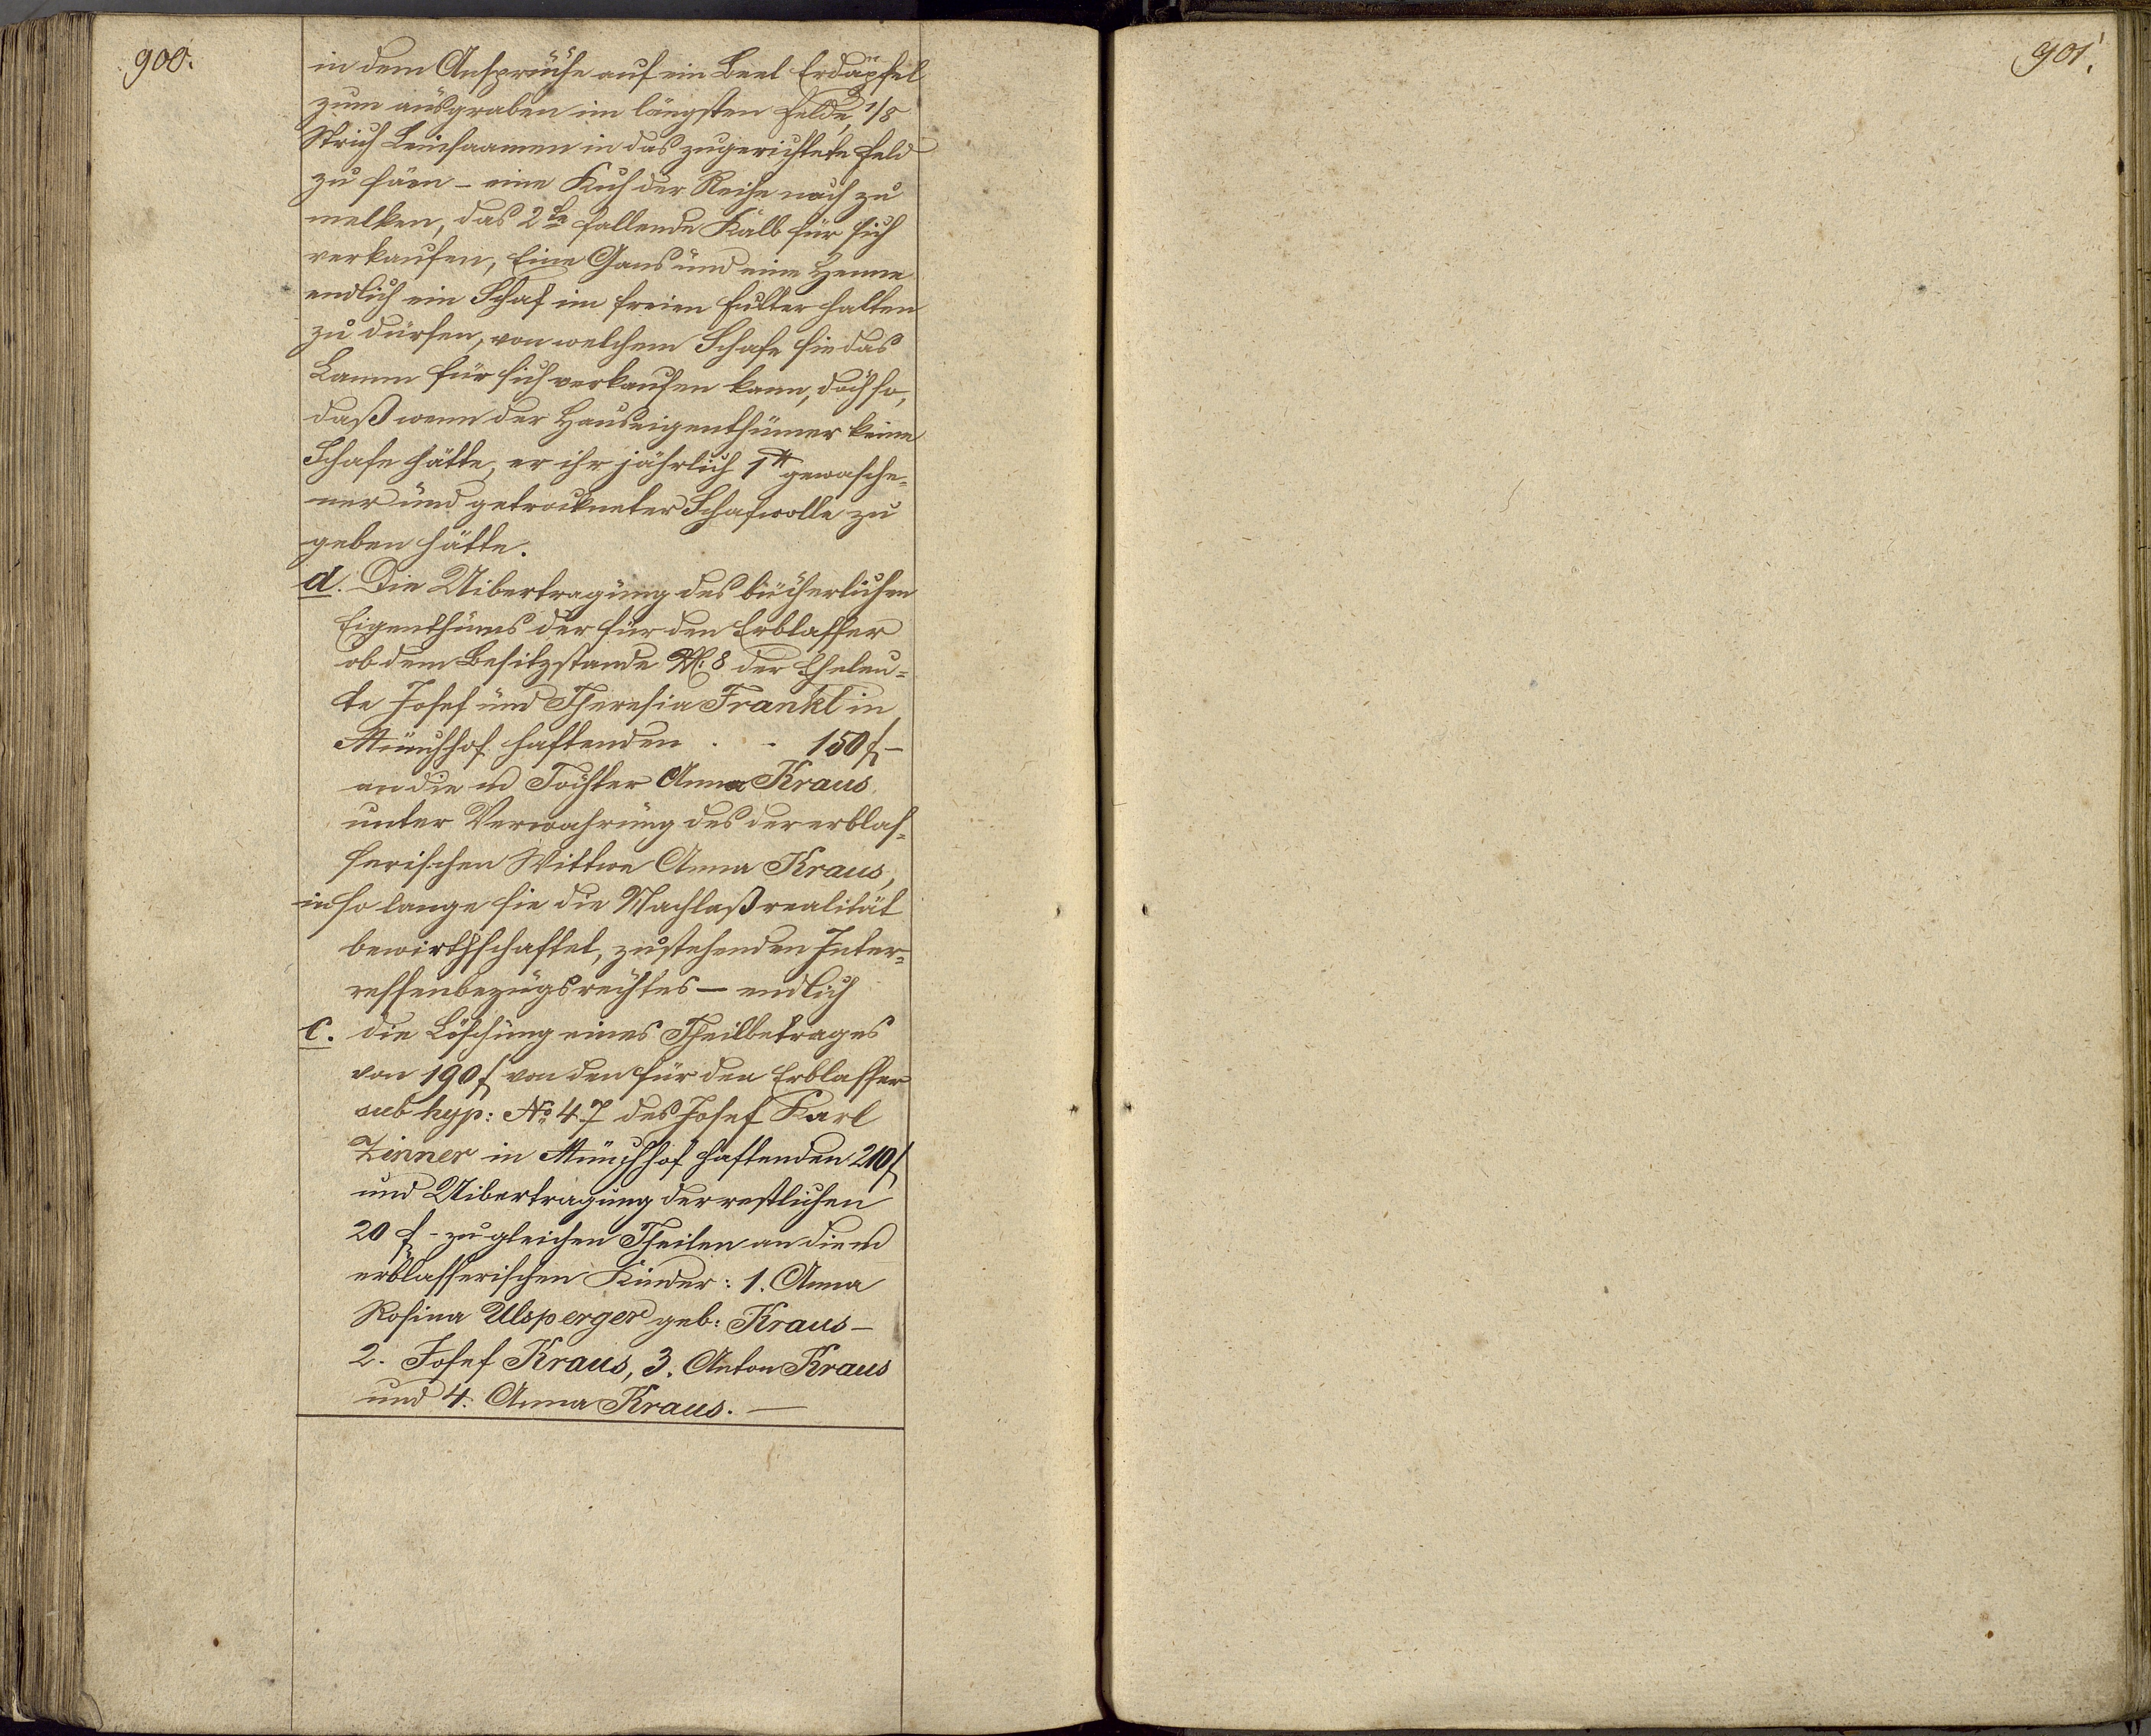 900.
in dem Ansprüche auf ein Beet Erdäpfel
zum ausgraben im längsten Felde, 1/8
Strich Leinsaamen in das zugerichtete Feld
zu säen – eine Kuh der Reihe nach zu
melken, das 2te fallende Kalb für sich
verkaufen, Eine Gans und eine Henne
endlich ein Schaf im freien Futter halten
zu dürfen, von welchem Schafe sie das
Lamm für sich verkaufen kann, doch so,
daß wenn der Hauseigenthümer keine
Schafe hätte, er ihr jährlich 1 ℔ gewasche-
ner und getrockneter Schafwolle zu
geben hätte.
d. Die Uibertragung des bücherlichen
Eigenthums der für den Erblasser
ob dem Besitzstande N. 8 der Eheleu-
te Josef und Theresia Frankl in
Münchhof haftenden . . 150 f –
an die m Tochter Anna Kraus
unter Verwahrung des der erblas-
serischen Wittwe Anna Kraus,
in so lange sie die Nachlaßrealität
bewirthschaftet, zustehenden Inter-
ressenbezugsrechtes – endlich
e. die Löschung eines Theilbetrages
von 190 f von den für den Erblasser
sub hyp: No 47 des Josef Karl
Zinner in Münchhof haftenden 210 f
und Uibertragung der restlichen
20 f – zu gleichen Theilen an die m
erblasserischen Kinder: 1. Anna
Rosina Ulsperger geb: Kraus –
2. Josef Kraus, 3. Anton Kraus
und 4. Anna Kraus. —
901.